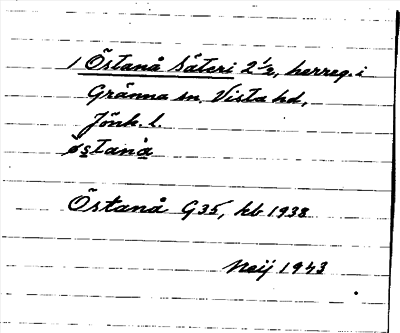 1 Östanå Säteri 2 1/2, herreg. i
Gränna sn, Vista hd,
Jönk. l.
östanå
Östanå G35, kb 1938
Meij 1943